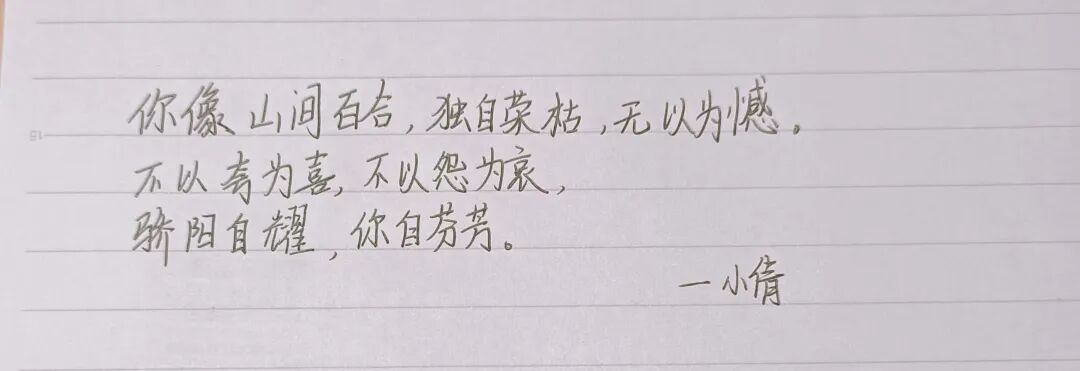 你像山间百合，独自荣枯，无以为憾。
不以夸为喜，不以怨为哀，
骄阳自耀，你自芬芳。
—小倩
15